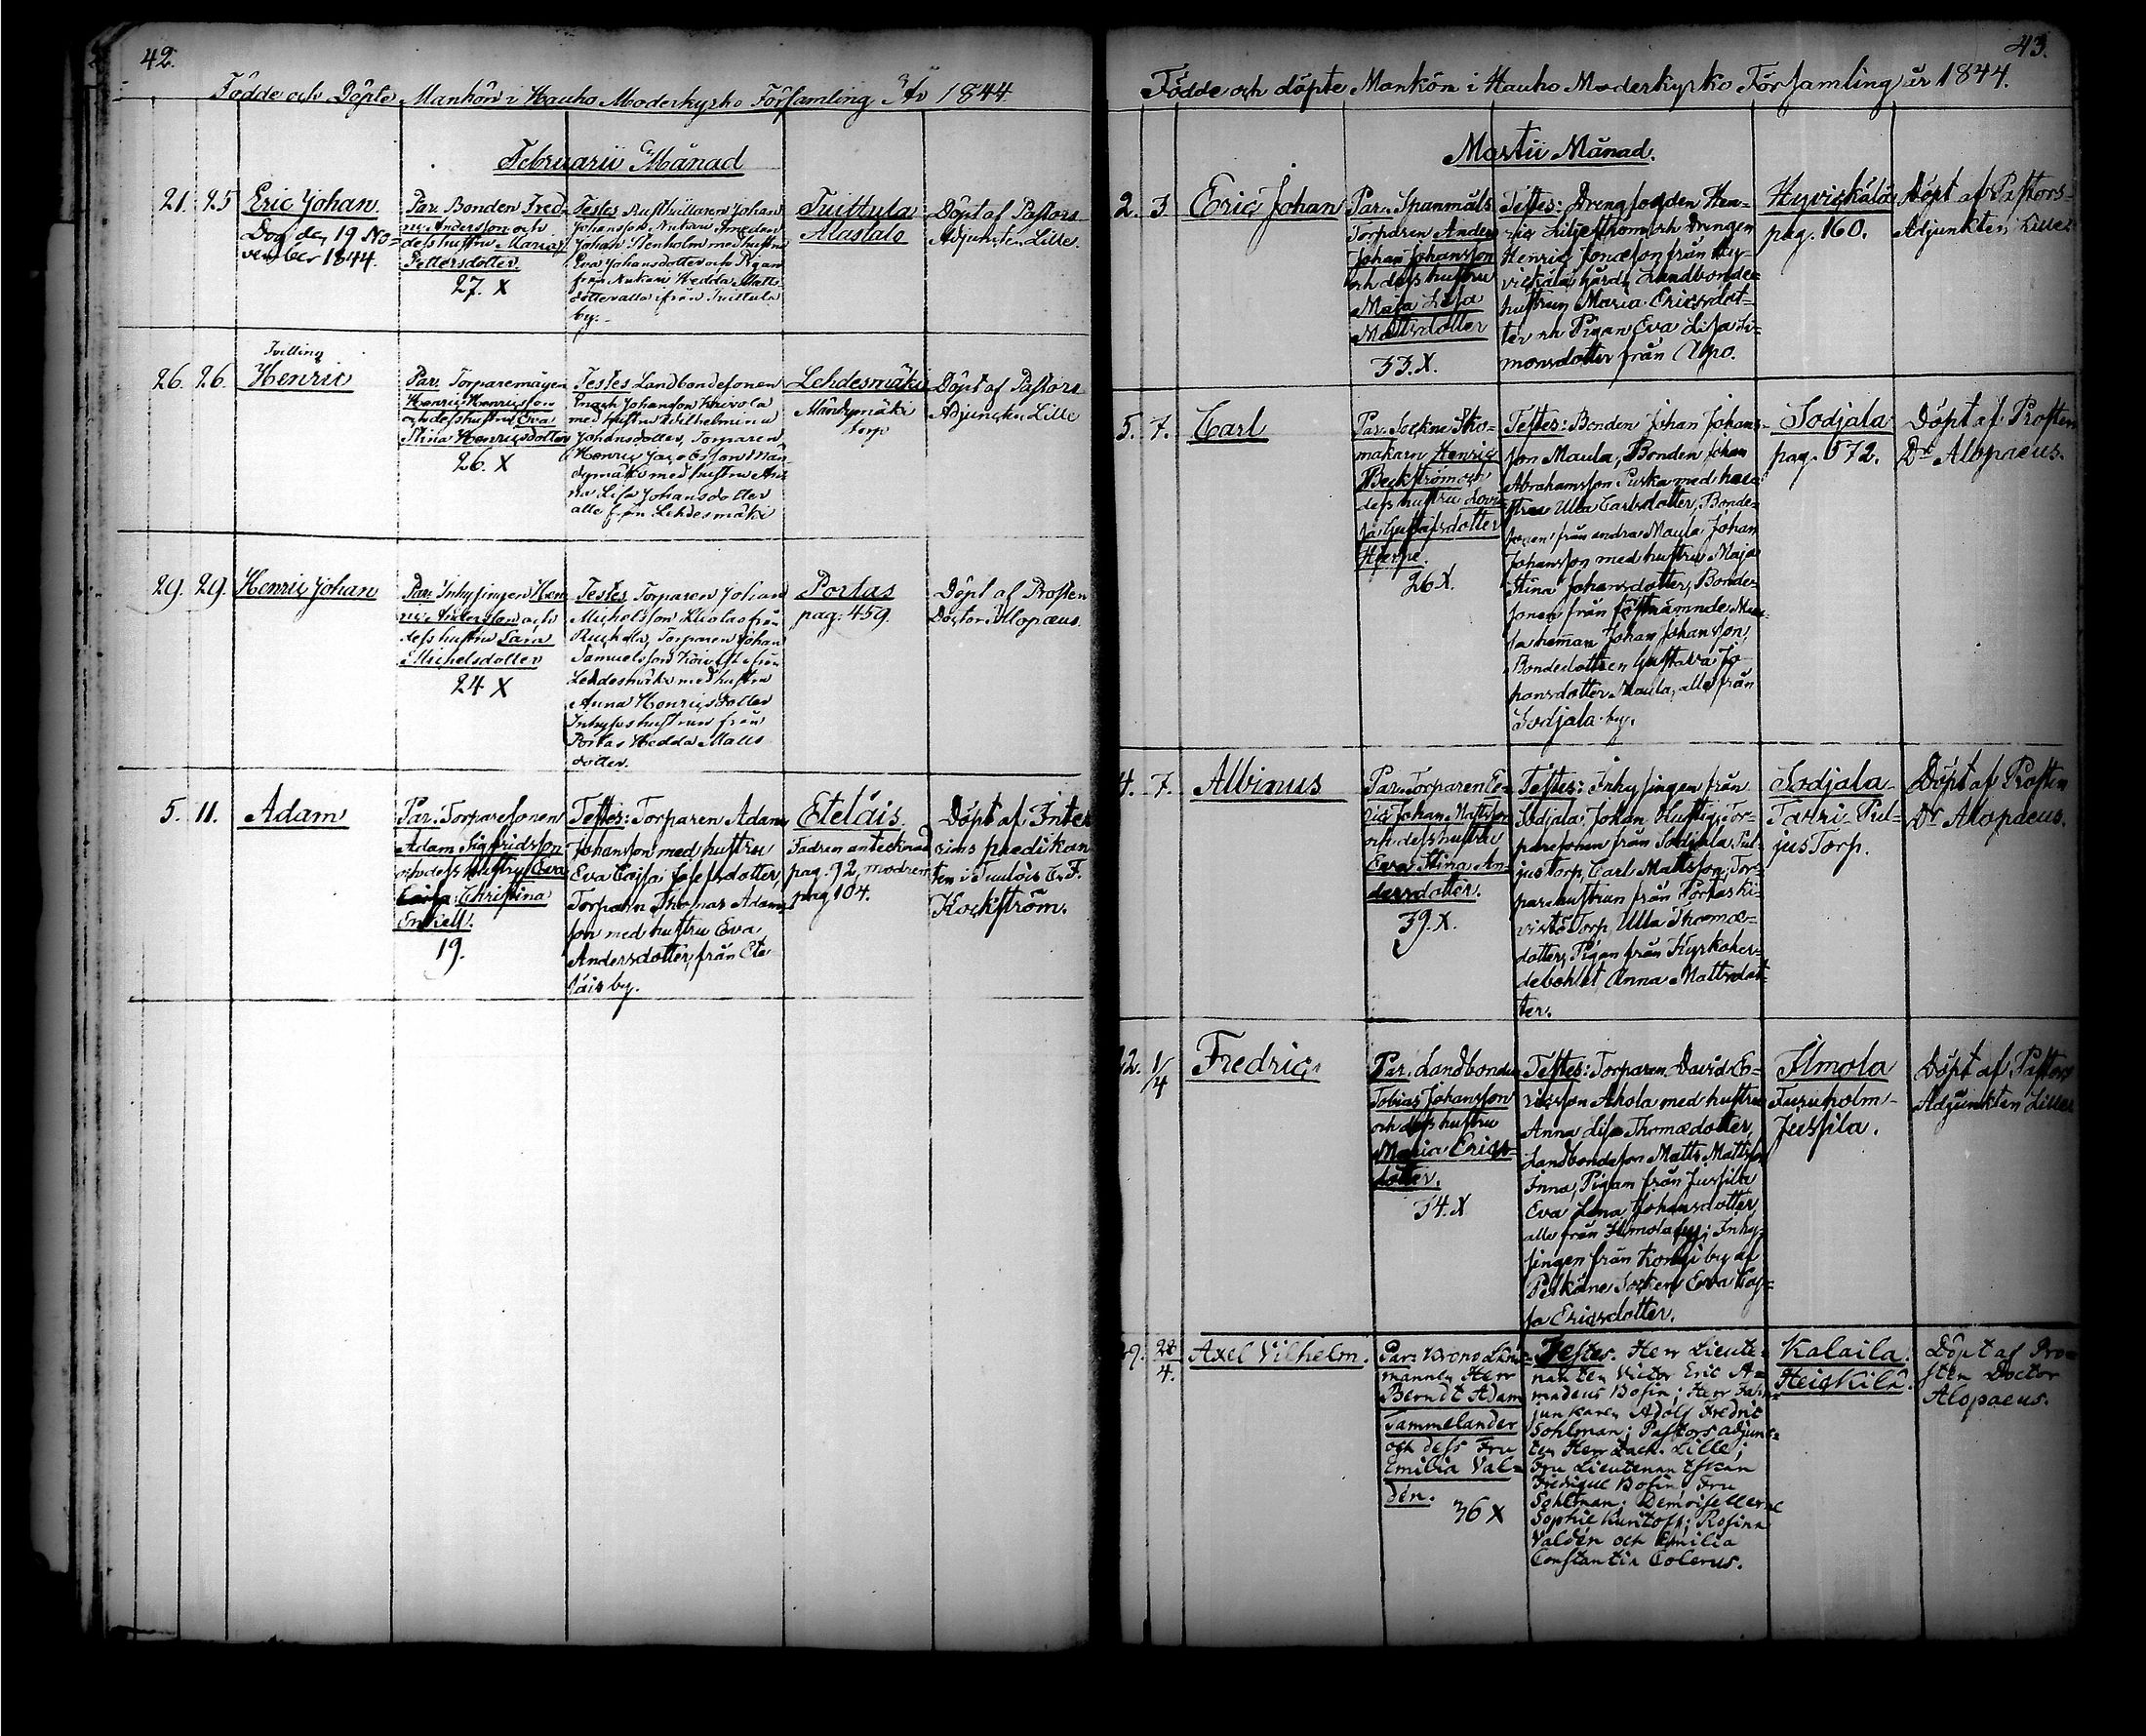 42.
Födde och Döpte Mankön i Hauho Moderkyrko Församling År 1844.
Februarii Månad
21. 25
Eric Johan.
Dog den 19 No-
vember 1844.
Par. Bonden Fred-
ric Andersson och
dess hustru Maria
Pettersdotter
27. X
Testes Rusthållaren Johan
Johansson
Johan Stenholm med hustru
Eva Johansdotter och Pigan
från Hedda Matts-
dotter alla ifrån Tuittula
by.
Tuittula
Alastalo
Döpt af Pastors
Adjuncten Lille.
26. 26.
Tvilling
Henric
Par. Torparemågen
Henric Henricsson
och dess hustru Eva
Stina Henricsdotter
26. X
Testes Landbondesonen
Enoch Johansson Knivola
med hustru Wilhelmina
Johansdotter, Torparen
Henric Jacobsson Män-
dymäki med hustru An-
na Lisa Johansdotter
alle från Lehdesmäki
Lehdesmäki
Mändymäki
torp
Döpt af Pastors
Adjuncten Lille
29. 29.
Henric Johan
Par. Inhysingen Hen-
ric Andersson och
dess hustru Sara
Michelsdotter
24 X
Testes Torparen Johan
Michelsson från
Torparen Johan
Samuelsson från
Lehdesmäki med hustru
Anna Henricsdotter
Inhyses hustrun från
Portas Hedda Matts
dotter.
Portas
pag. 459.
Döpt af Prosten
Doctor Alopæus.
5. 11.
Adam
Par. Torparesonen
Adam Sigfridsson
och dess hustru Eva
Christina
Enkell.
19.
Testes: Torparen Adam
Johansson med hustru
Eva Caisa Josefsdotter,
Torparen Thomas Adams-
son med hustru Eva
Andersdotter, från Ete
läis by.
Eteläis.
Fadren antecknad
pag. 92, modren
pag 104.
Döpt af Inter
rims predikan
ten i Tuulois E. F.
Kockström.
43.
Födde och döpte Mankön i Hauho Moderkyrko Församling år 1844.
Martii Månad.
2. 3
Eric Johan
Par. Spanmåls
Torparen Anders
Johan Johansson
och dess hustru
Maja Lisa
Mattsdotter
33. X.
Testes: Drengfogden Hen-
ric Liljeström och Drengen
Henric Jonæson från Hy-
vickälä gård, Landbonde-
hustrun Maria Ericsdot-
ter och Pigan Eva Lisa Si-
monsdotter från Alpo.
Hyvickälä
pag. 160.
Döpt af Pastors-
Adjunkten Lille
5. 7.
Carl
Par. Sockne Sko-
makarn Henric
Beckström och
dess hustru Lovi-
sa Gustafsdotter
Hierpe.
26 X.
Testes: Bonden Johan Johans-
son Maula, Bonden Johan
Abrahamsson Puska med hu-
stru Ulla Carlsdotter, Bonde-
sonen från andra Maula Johan
Johansson med hustru Maja
Stina Johansdotter, Bonde-
sonen från förstnämnde Mau-
la heman Johan Johansson,
Bondedottren Gustava Jo-
hansdotter Maula, alle från
Sodjala by.
Sodjala
pag. 572.
Döpt af Prosten
Dr Alopaeus.
4. 7.
Albinus
Par. Torparen E-
ric Johan Mattsson
och dess hustru
Eva Stina An-
dersdotter.
39. X.
Testes: Inhysingen från
Sodjala Johan Hustig, Tor-
paresonen från Sodjala Pul-
jus Torp, Carl Mattsson, Tor-
parehustrun från Portas Ki-
vistö Torp, Ulla Thomæ-
dotter, Pigan från Kyrkoher-
debohlet Anna Mattsdot-
ter.
Sodjala
Tavri-Pul-
jus Torp.
Döpt af Prosten
Dr Alopaeus.
22. 1/4
Fredric
Par. Landbonden
Tobias Johansson
och dess hustru
Maria Erics-
dotter.
34. X
Testes: Torparen David E-
ricsson Ahola med hustru
Anna Lisa Thomædotter,
Landbondeson Matts Mattsson
Inna, Pigan från Jussila
Eva Lena Johansdotter
alle från Ilmola by; Inhy-
singen från by af
Pelkäne Socken Eva Caj-
sa Ericsdotter.
Ilmola
Furuholm-
Jussila.
Döpt af Pastors
Adjunkten Lille
28/4.
Axel Vilhelm.
Par. Krono Läns-
mannen Herr
Berndt Adam
Tammelander
och dess Fru
Emilia Val-
dén.
36 X
Testes. Herr Lieute-
nanten Victor Eric A-
madeus Bosin; Herr Fän-
junkaren Adolf Fredric
Sohlman; Pastors adjunc-
ten Herr Zach. Lille;
Fru Lieutenantskan
Fredrique Bosin, Fru
Sohlman; Demoisellerne
Sophie Rosina
Valdén och Emilia
Constantia Colerus.
Kalaila.
Heickilä.
Döpt af Pro-
sten Doctor
Alopaeus.